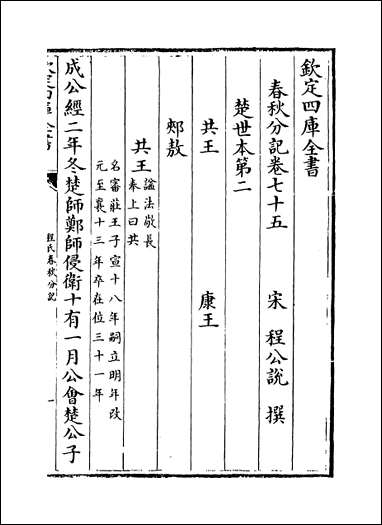 欽定四庫全書
春秋分記卷七十五　宋　程公說　撰
楚世本第二
共王　康王
郟敖
共王
諡法敬長
奉上曰共
名審莊王子宣十八年嗣立明年改
元至襄十三年卒在位三十一年
成公經二年冬楚師鄭師侵衛十有一月公會楚公子
欽定四庫全書
程氏春秋分記
一